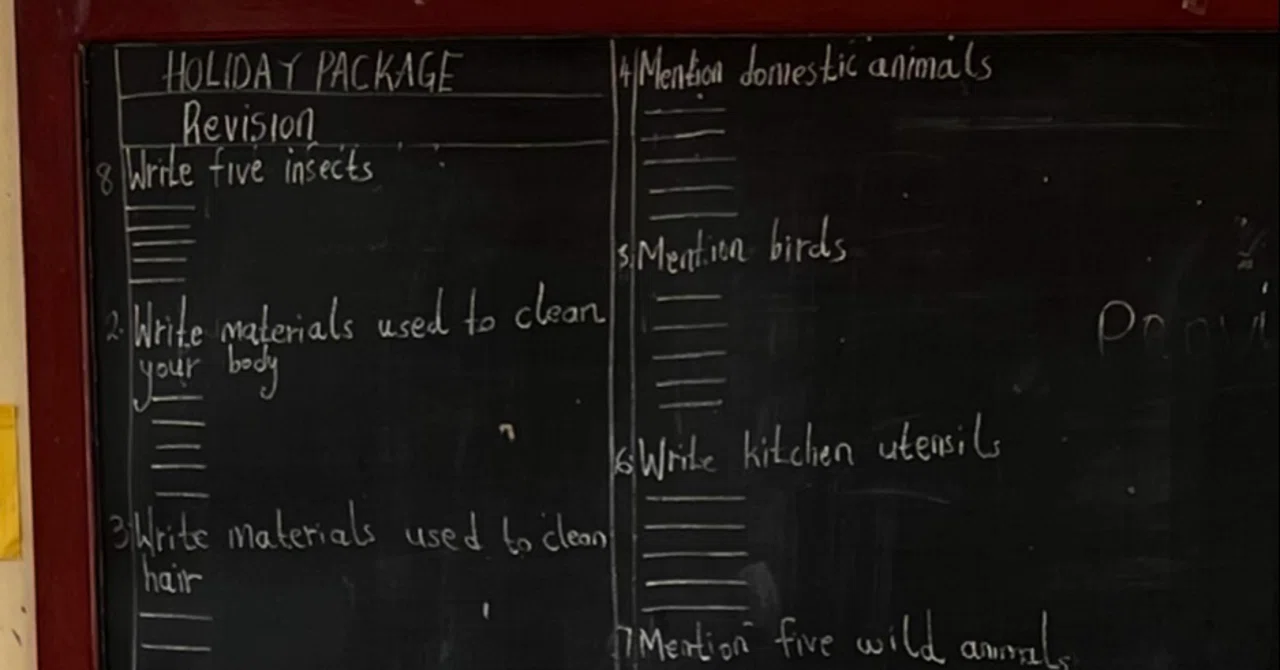 HOLIDAY PACKAGE
Revision
8 Write five insects
2. Write materials used to clean
your body
3 Write materials used to clean
hair
4 Mention domestic animals
5. Mention birds
6. Write kitchen utensils
7 Mention five wild animals